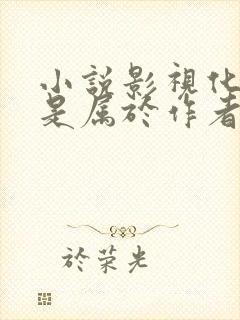 小說影視化
是屬於作者
於荣光